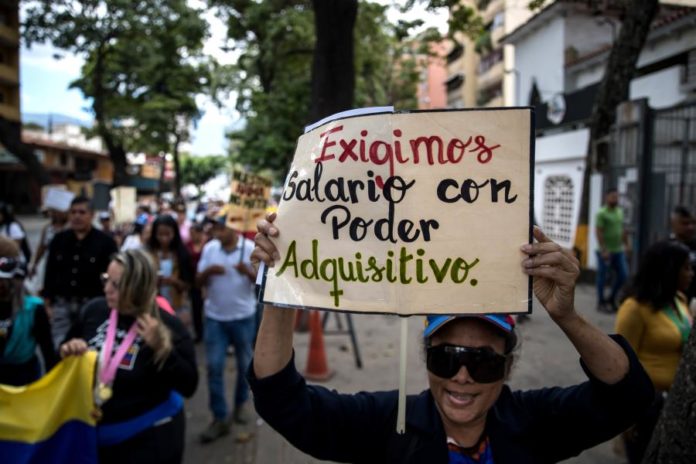 Exigimos
Salario con
Poder
Adquisitivo.